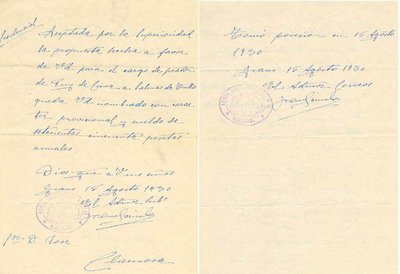 Aceptada por la Superioridad
la propuesta hecha a favor
de Vd. para el cargo de peatón
de Puig de Cinca a Salinas de Trillo
queda Vd. nombrado con carac
ter provisional y sueldo de
setecientas cincuenta pesetas
anuales
Dios que a V. ms. años
Graus 15 Agosto 1930
El Admor
Sr. D. José
Clamosa
Tomó posesión en 16 Agosto
1930
Graus 16 Agosto 1930
El Admor Correos